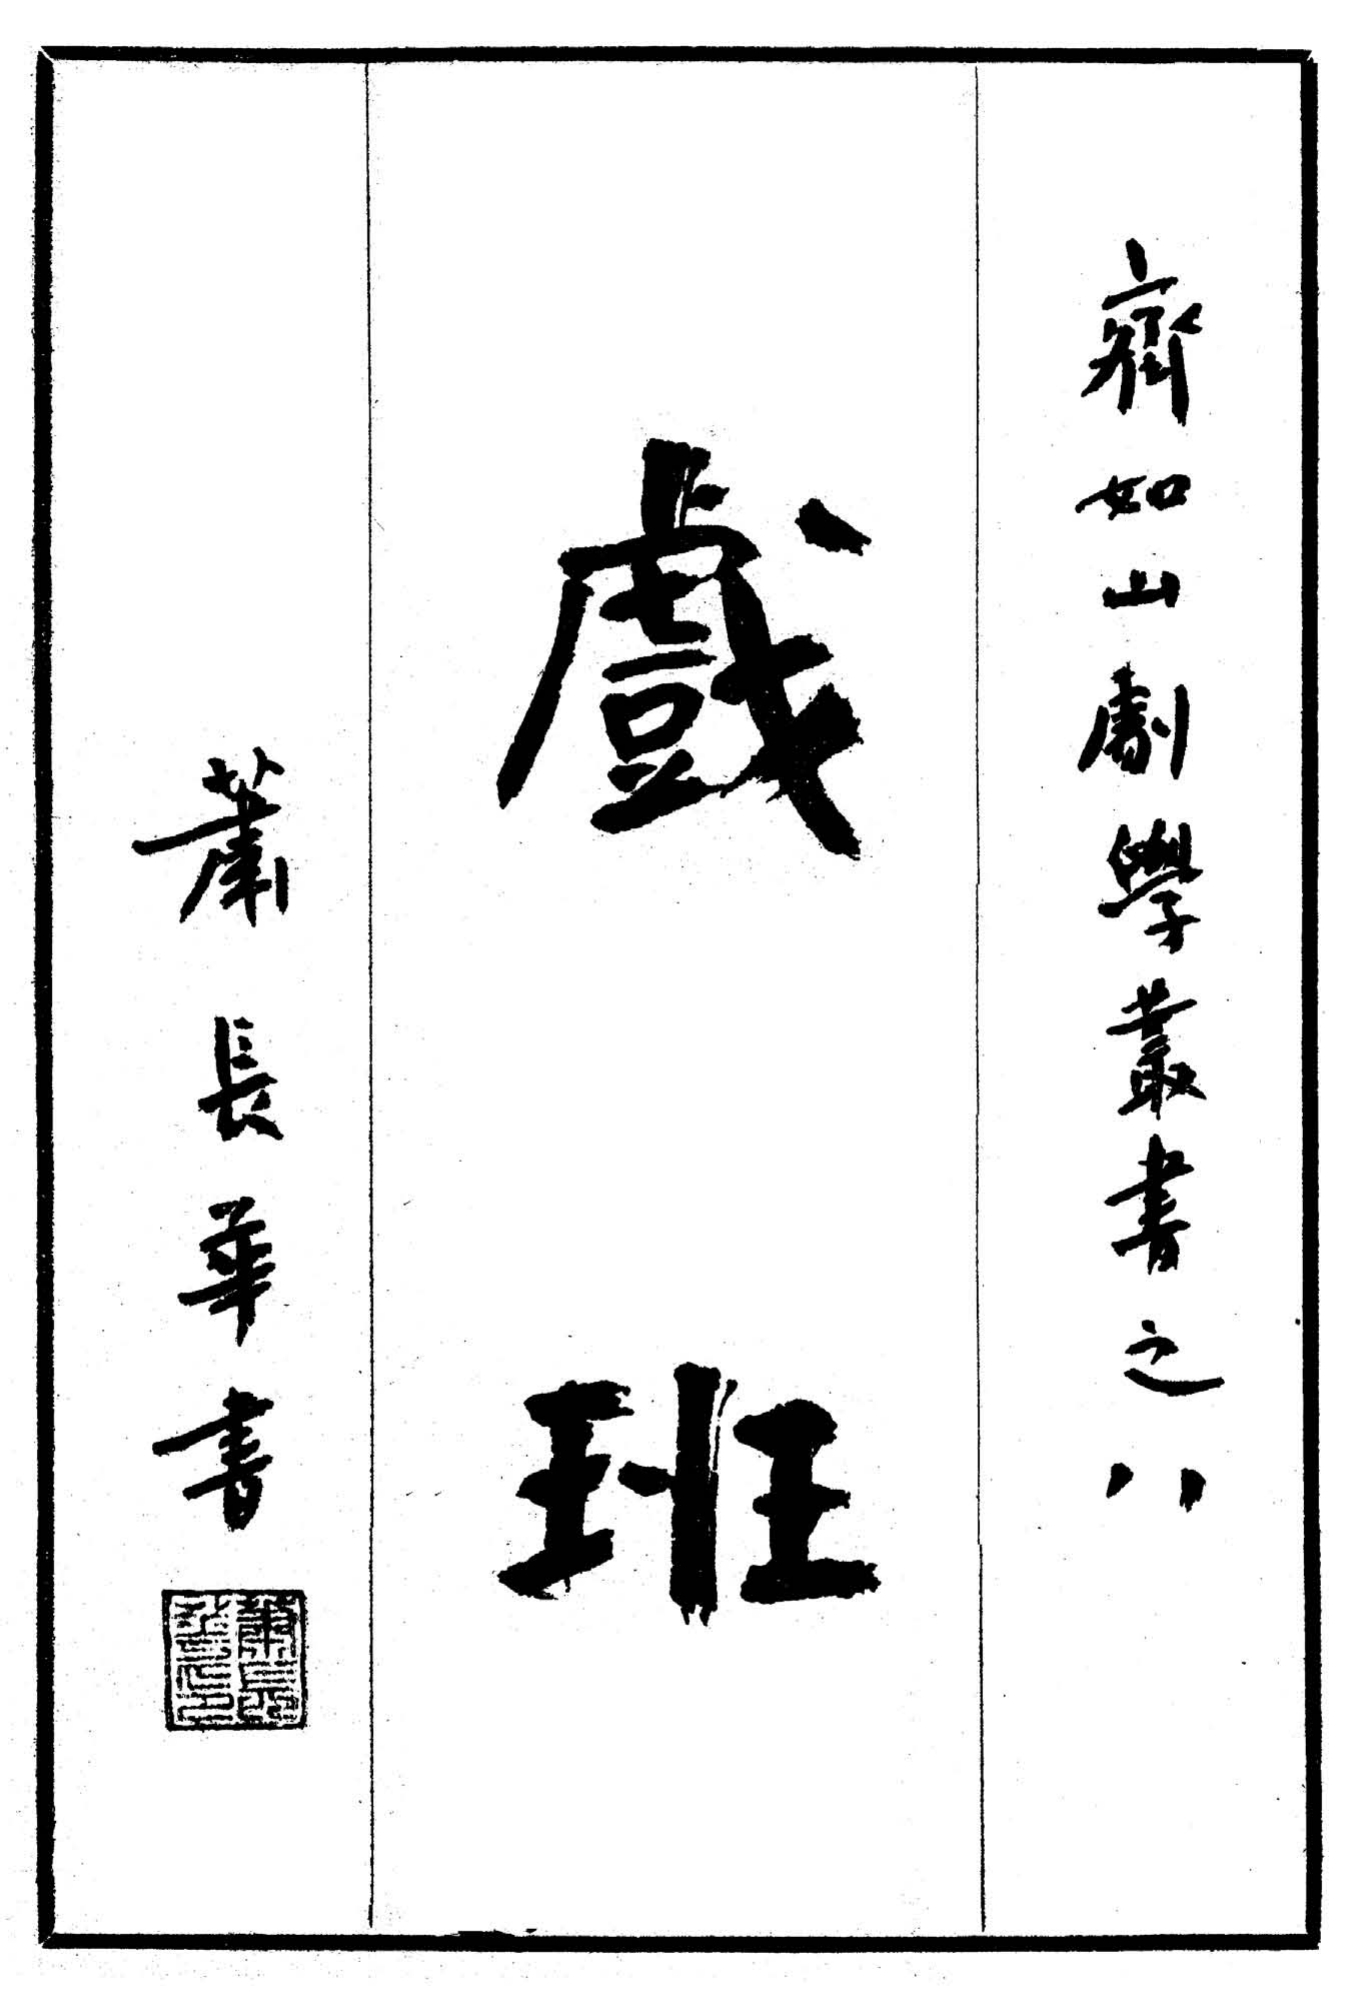 齊如山劇學叢書之八
戲班
蕭長華書